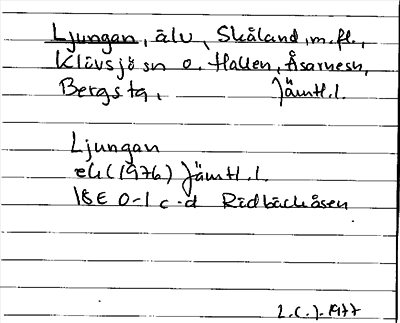 Ljungan, älv, Skåland, m.fl.,
Klövsjö sn o. Hallen, Åsarnesn,
Bergs tg, Jämtl. l.
Ljungan
ek (1976) Jämtl. l.
18E 0-1 c-d Rödbäckåsen
1977